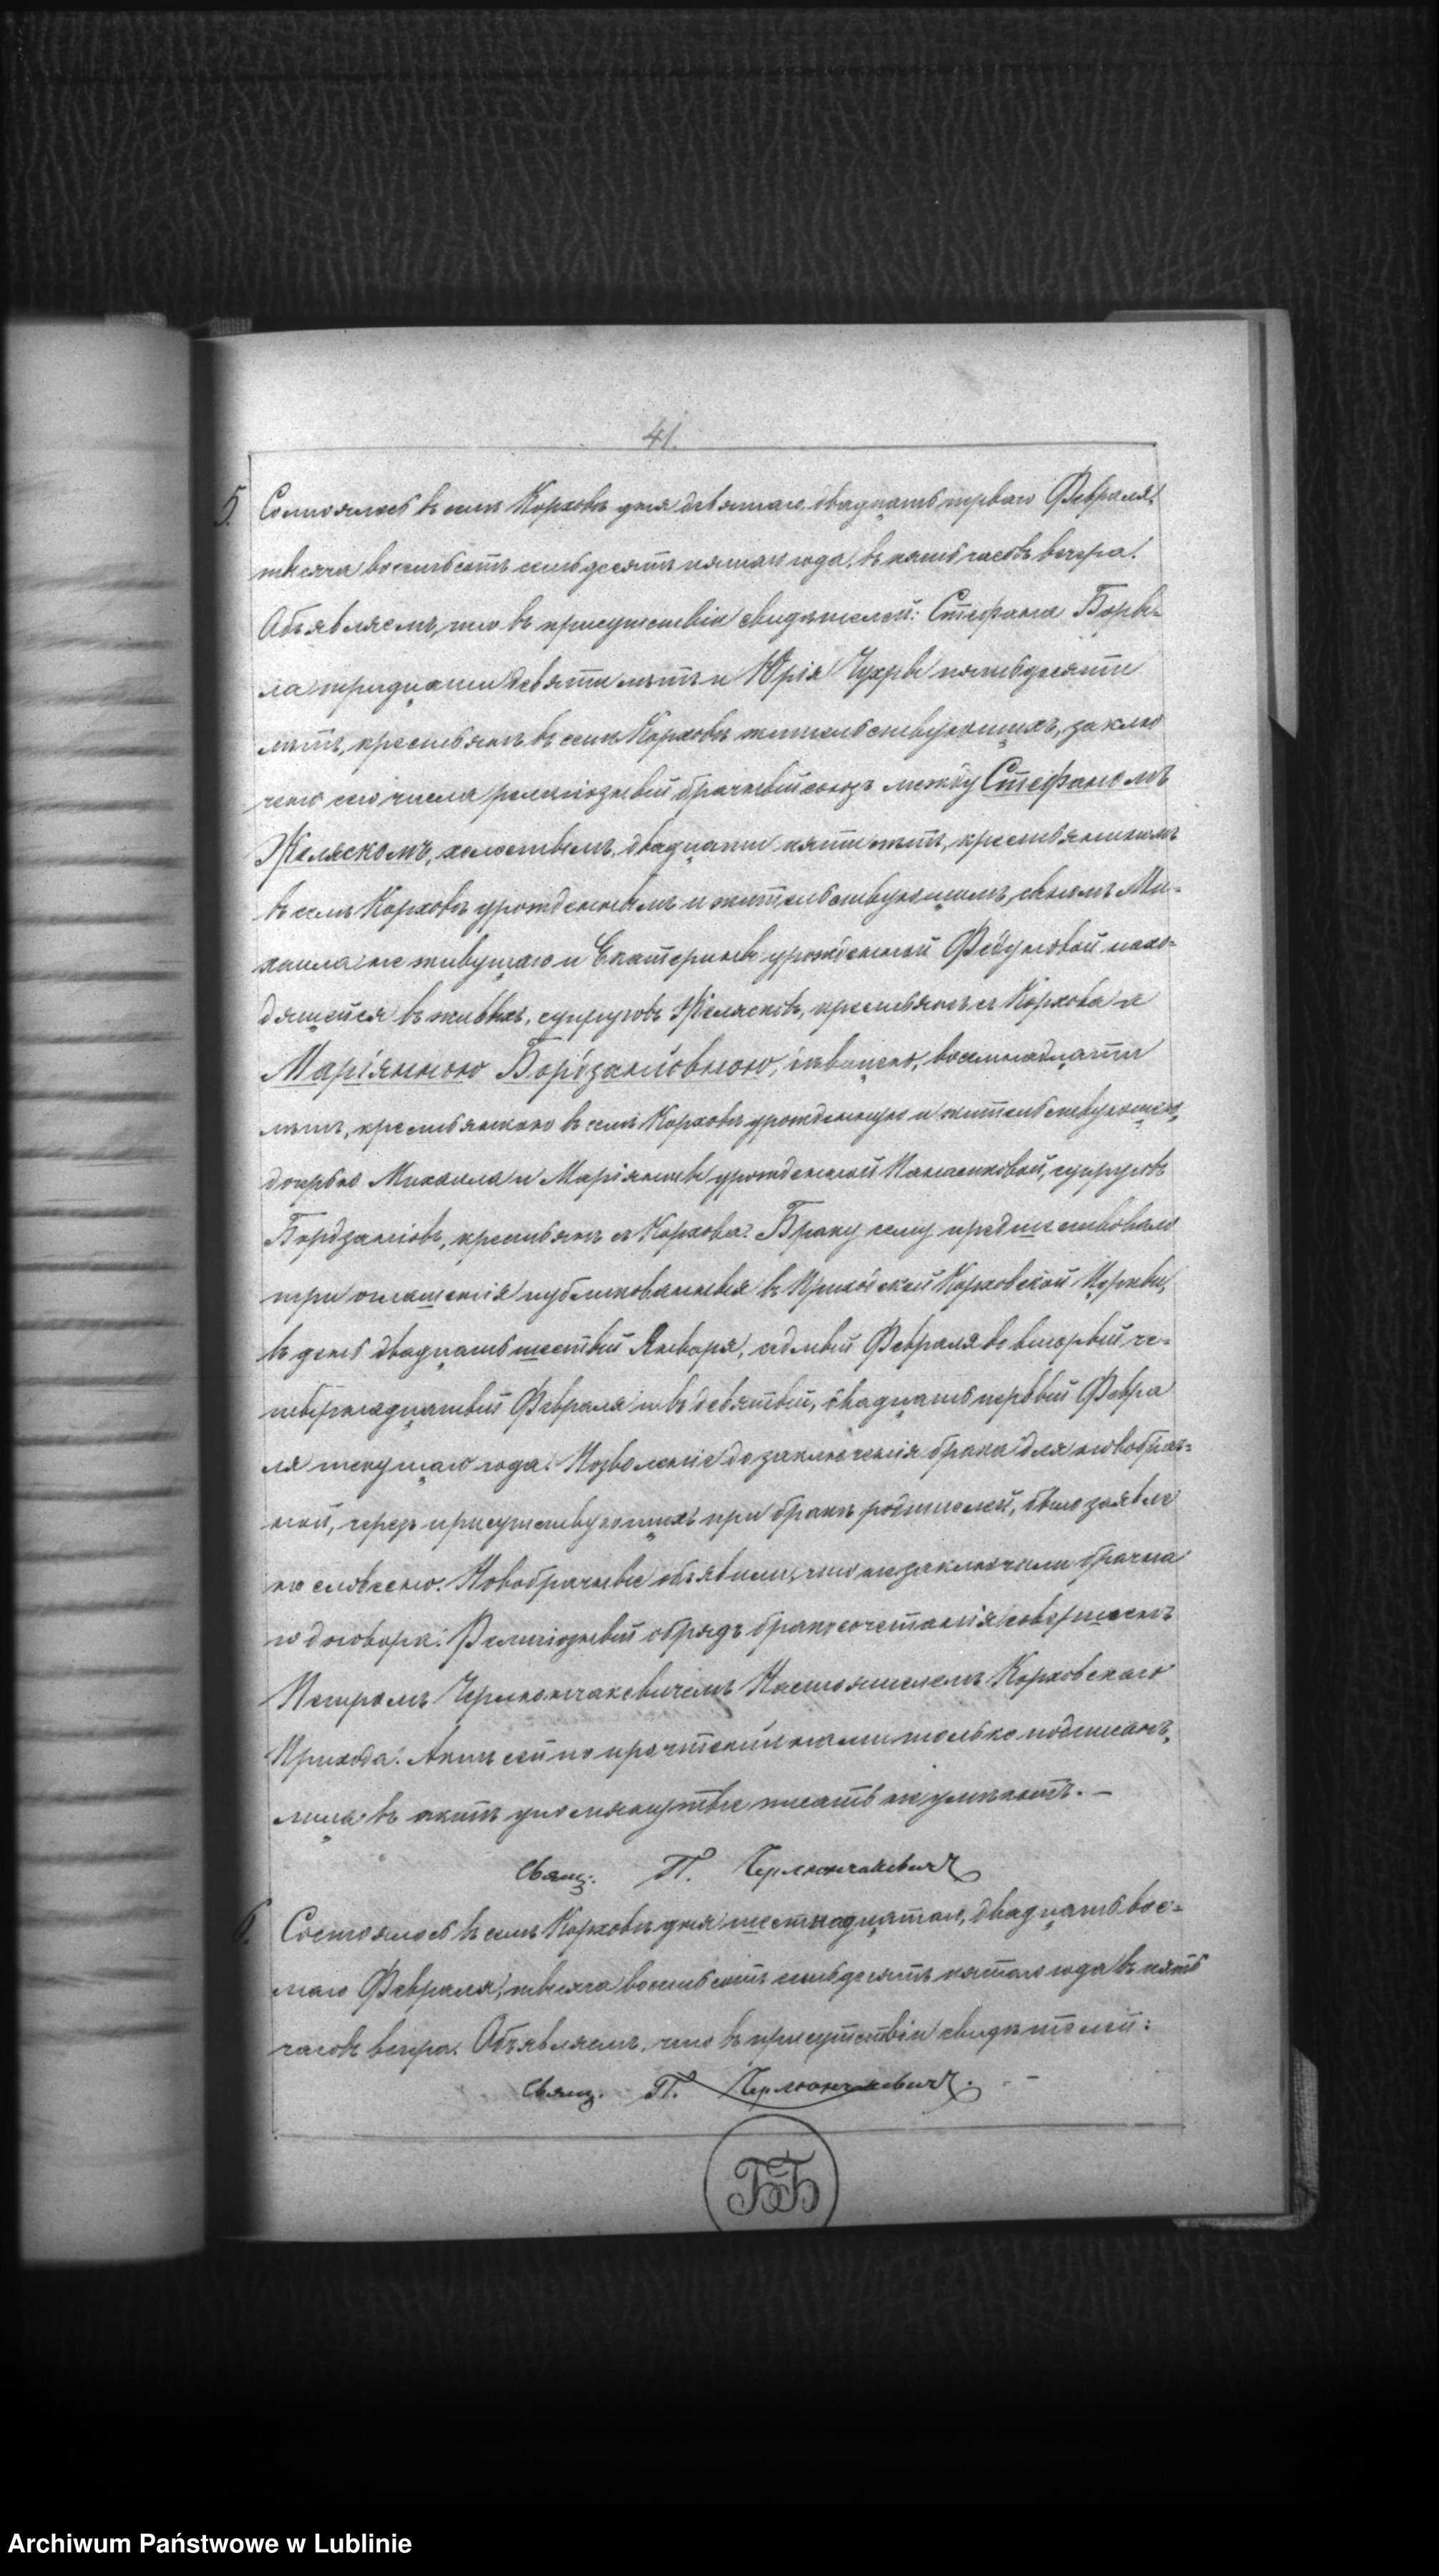 41.
5. Состоялось въ селѣ Корховѣ дня девятаго, двадцать перваго Февраля,
тысяча восемьсотъ семьдесятъ пятаго года, въ пять часовъ вечера.
Объявляемъ, что въ присутствіи свидѣтелей: Стефана
ла тридцати девяти лѣтъ и Юрія Чухры пятьдесяти
лѣтъ, крестьянъ въ селѣ Корховѣ жительствующихъ, заклю
чено сего числа религіозный брачный союзъ между Стефаномъ
Желяскомъ, холостымъ, двадцати пяти лѣтъ, крестьяниномъ
въ селѣ Корховѣ урожденнымъ и жительствующимъ, сыномъ Ми-
хаила не живущаго и Екатерины урожденной нахо-
дящейся въ живыхъ, супруговъ Желясковъ, крестьянъ съ Корхова и
Маріянною Бордзанёвною, дѣвицею, восемнадцати
лѣтъ, крестьянкою въ селѣ Корховѣ урожденную и жительствующею,
дочерью Михаила и Маріянны урожденной супруговъ
Бордзанёвъ, крестьянъ съ Корхова. Браку сему предшествовало
три оглашенія публикованныя въ Приходской Корховской Церкви,
въ день двадцать шестый Января, седмый Февраля во вторый че-
тырнадцатый Февраля и въ девятый, двадцать первый Февра
ля текущаго года. Позволеніе до заключенія брака для новобрач-
ной, черезъ присутствующихъ при бракѣ родителей, было заявле
но словесно. Новобрачные объявили, что не заключали брачна
го договора. Религіозный обрядъ бракосочетанія совершенъ
Петромъ Черлюнчакевичемъ Настоятелемъ Корховскаго
Прихода. Актъ сей по прочтеніи нами только подписанъ,
лица въ актѣ упомянутые писать не умѣютъ. —
Свящ. П. Черлюнчакевичъ
6. Состоялось въ селѣ Корховѣ дня шестнадцатаго, двадцать вось-
маго Февраля, тысяча восемьсотъ семьдесятъ пятаго года въ пять
часовъ вечера. Объявляемъ, что въ присутствіи свидѣтелей:
Свящ. П. Черлюнчакевичъ. - -
ББ
Archiwum Państwowe w Lublinie